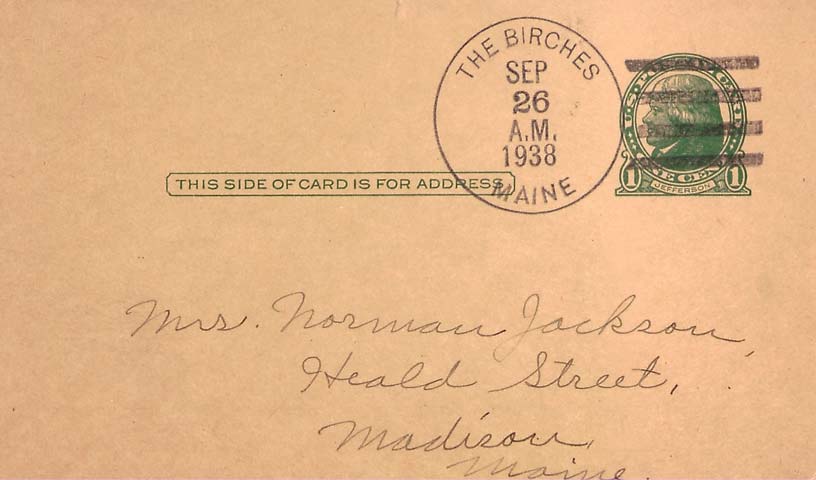 THE BIRCHES
SEP
26
A.M.
1938
MAINE
THIS SIDE OF CARD IS FOR ADDRESS
1 JEFFERSON 1
Mrs. Norman Jackson,
Heald Street,
Madison,
Maine.